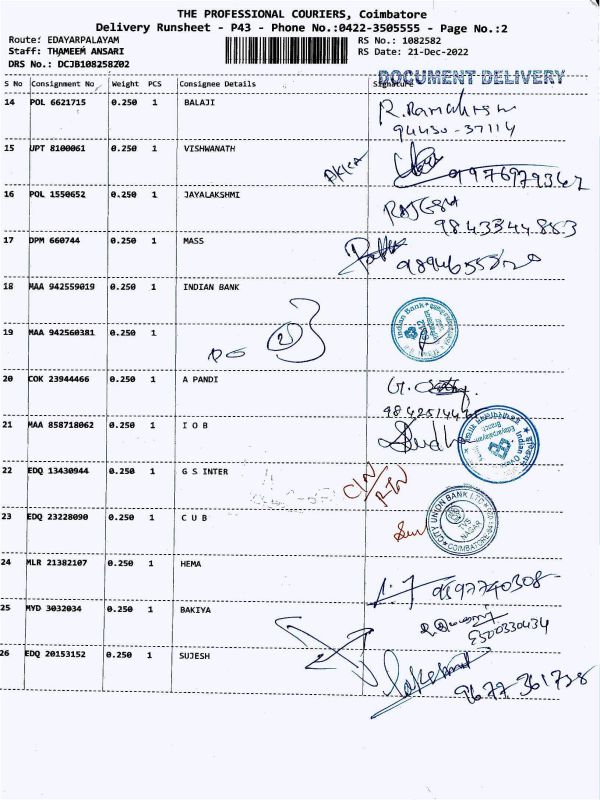 THE PROFESSIONAL COURIERS, Coimbatore
Delivery Runsheet - P43 - Phone No.:0422-3505555 - Page No.:2
Route: EDAYARPALAYAM RS No.: 1082582
Staff: THAMEEM ANSARI RS Date: 21-Dec-2022
DRS No.: DCJB108258Z02
DOCUMENT DELIVERY
S No Consignment No Weight PCS Consignee Details Signature
14 POL 6621715 0.250 1 BALAJI
94430-37114
15 UPT 8100061 0.250 1 VISHWANATH
16 POL 1550652 0.250 1 JAYALAKSHMI RAJESH
9843344883
17 DPM 660744 0.250 1 MASS
18 MAA 942559019 0.250 1 INDIAN BANK
Indian Bank
19 MAA 942560381 0.250 1
20 COK 23944466 0.250 1 A PANDI
21 MAA 858718062 0.250 1 I O B
Sudha
22 EDQ 13430944 0.250 1 G S INTER
23 EDQ 23228090 0.250 1 C U B
CITY UNION BANK LTD
TVS NAGAR
COIMBATORE
24 MLR 21382107 0.250 1 HEMA
25 MYD 3032034 0.250 1 BAKIYA
26 EDQ 20153152 0.250 1 SUJESH
9677 361738